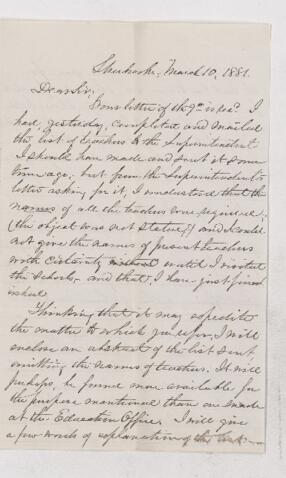 Sherbrooke, March 10, 1881.
Dear Sir,
Your letter of the 9th is rec'd. I
have, yesterday, completed and mailed
the list of teachers to the Superintendent.
I should have made and sent it some
time ago; but from the Superintendent's
letter asking for it, I understood that the
names of all the teachers were required,
(the object was not stated,) and I could
not give the names of present teachers
with certainty until I visited
the schools, and that I have just finished
Thinking that it may expedite
the matter to which you refer, I will
enclose an abstract of the list sent
omitting the names of teachers. It will
perhaps, be found more available for
the purpose mentioned than one made
at the Education Office. I will give
a few words of explanation of the